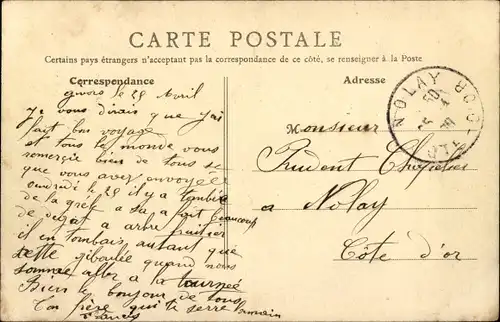 CARTE POSTALE
Certains pays étrangers n'acceptant pas la correspondance de ce côté, se renseigner à la Poste
Correspondance
Adresse
NOLAY
le 29 Avril
Je vous dirais que j'ai
fait bon voyage
et tous le monde vous
remercie bien de tous se
que vous avez envoyer
le 29 il y a tombée
de la grêle a se a fait beaucoup
de degat a arbre fruitier
il en tombais autant que
sette giboulée quand nous
somme aller a la tournée
Bien le bonjour de tous
Ton frère qui te serre la main
Monsieur
Prudent
a Nolay
Côte d'or